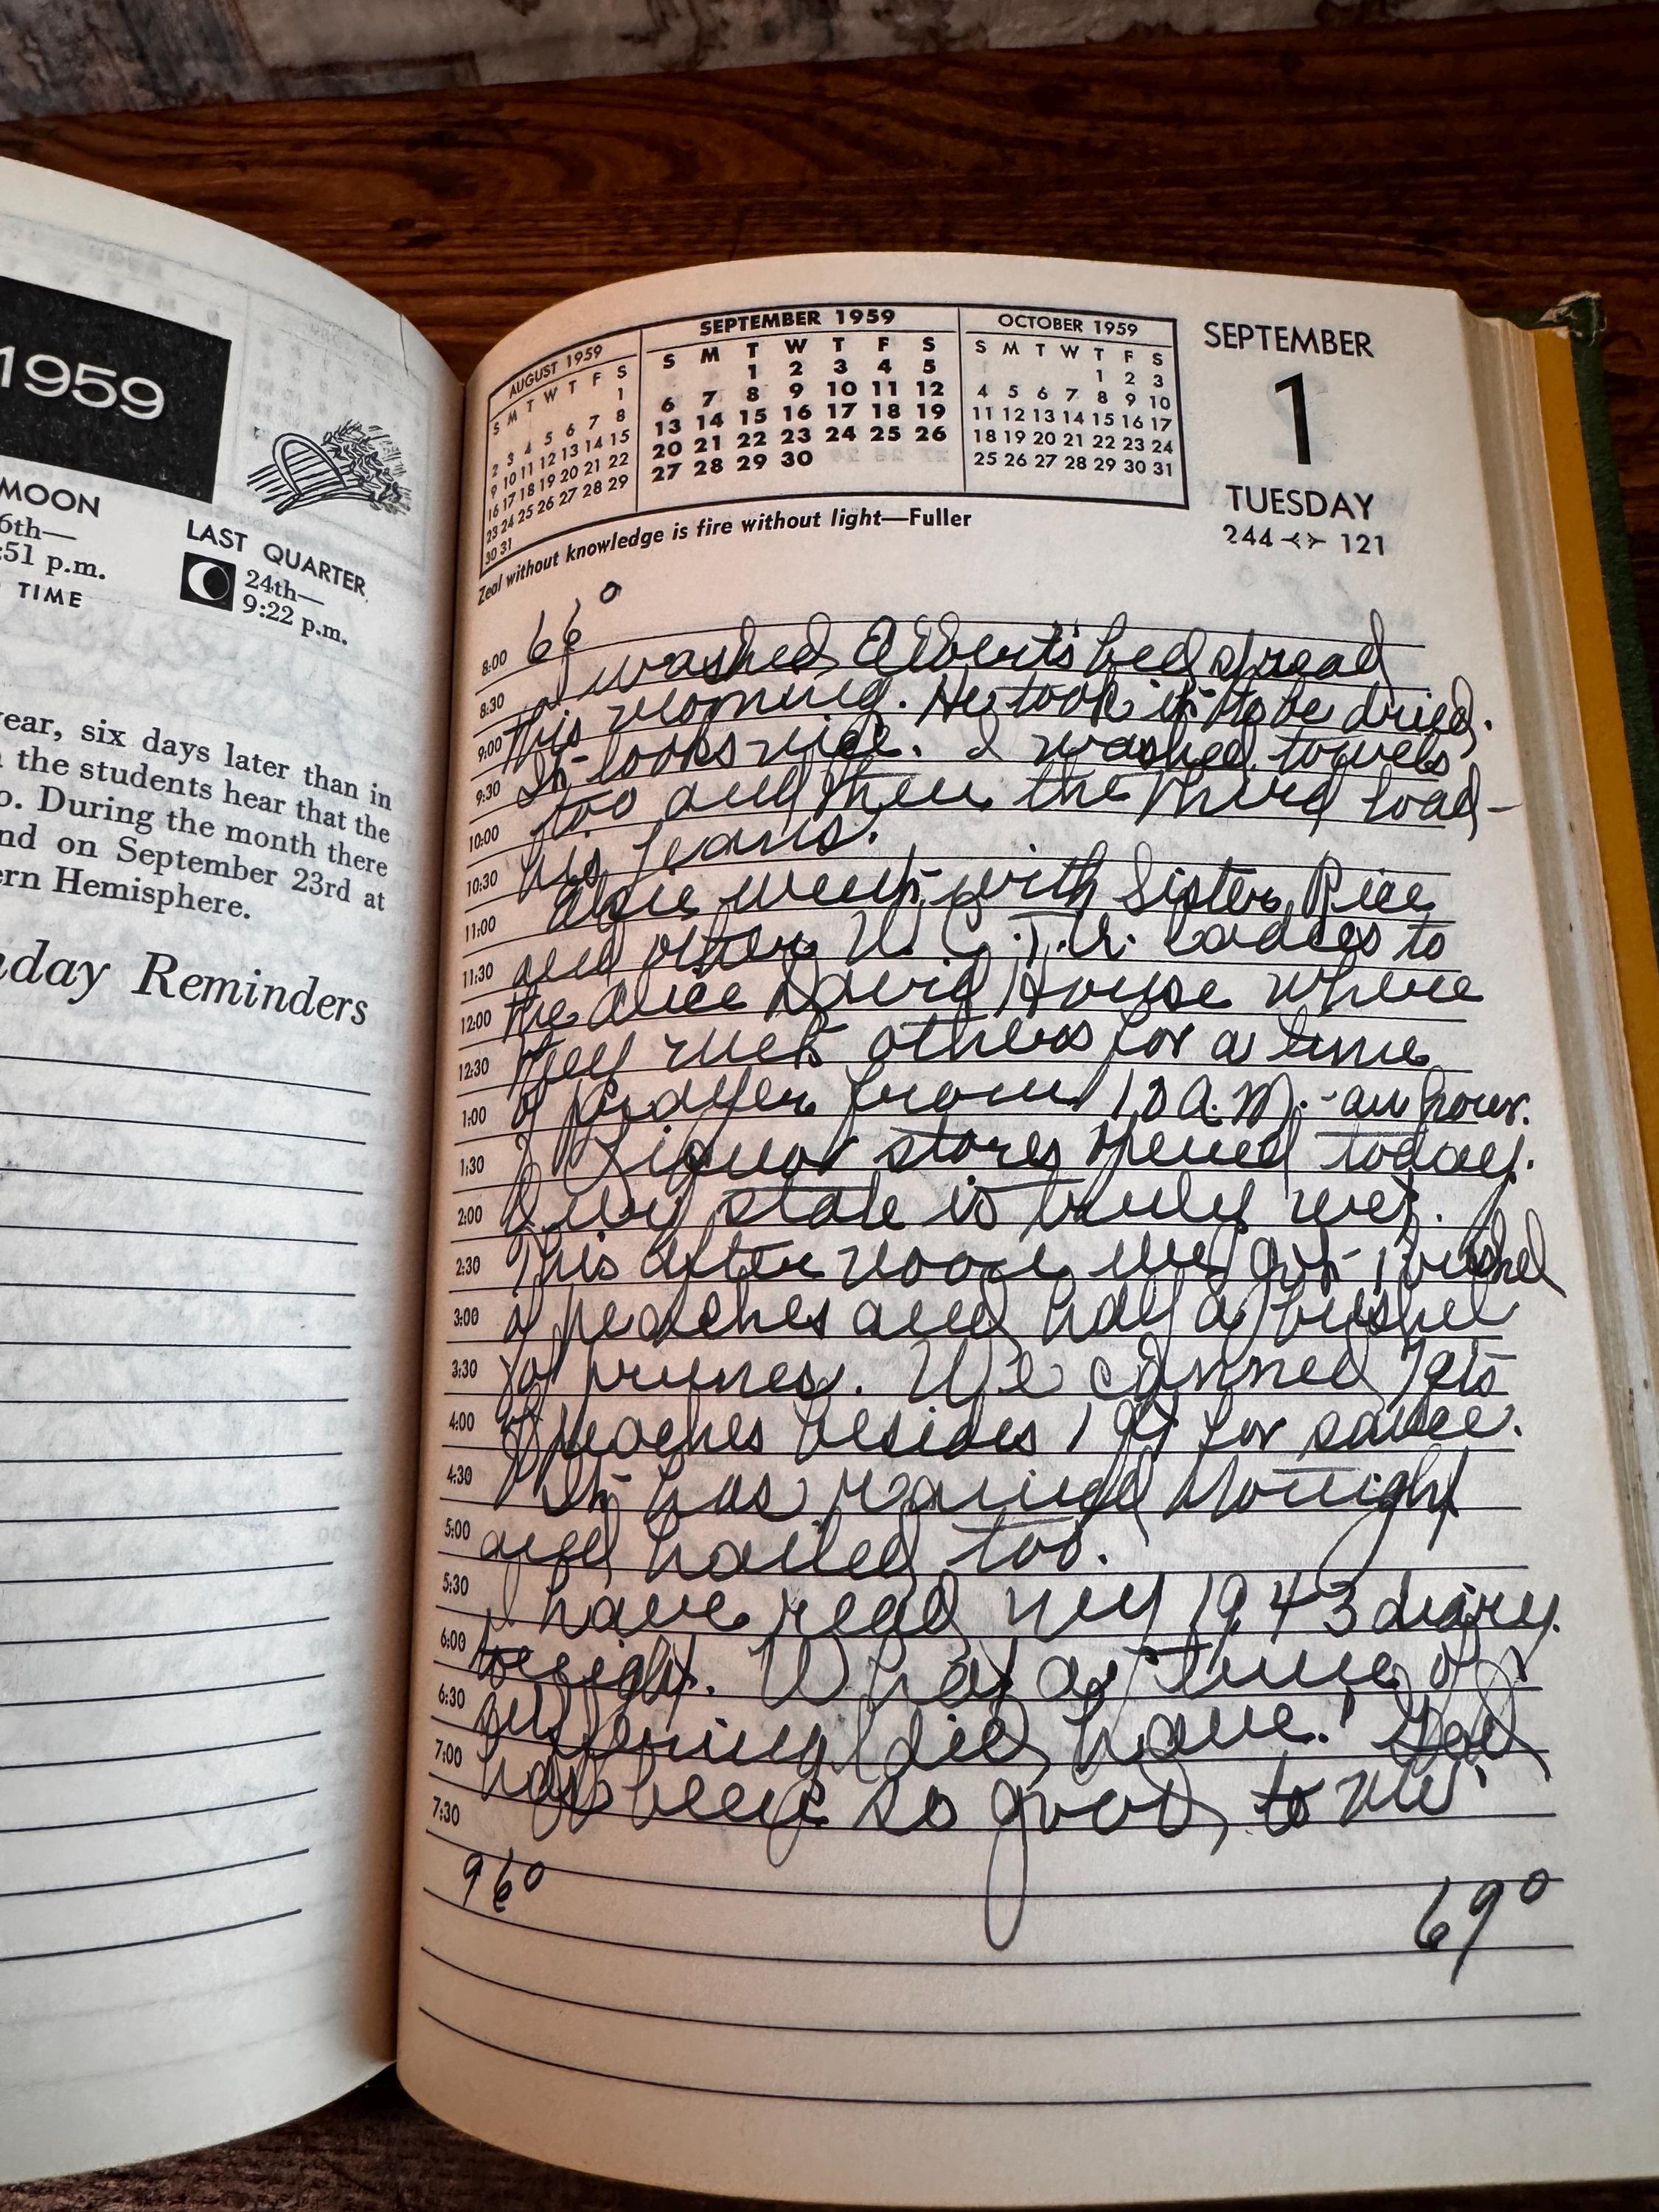 1959
MOON
6th—
:51 p.m.
LAST QUARTER
24th—
9:22 p.m.
TIME
year, six days later than in
the students hear that the
o. During the month there
nd on September 23rd at
ern Hemisphere.
day Reminders
AUGUST 1959
S M T W T F S
1
2 3 4 5 6 7 8
9 10 11 12 13 14 15
16 17 18 19 20 21 22
23 24 25 26 27 28 29
30 31
SEPTEMBER 1959
S M T W T F S
1 2 3 4 5
6 7 8 9 10 11 12
13 14 15 16 17 18 19
20 21 22 23 24 25 26
27 28 29 30
OCTOBER 1959
S M T W T F S
1 2 3
4 5 6 7 8 9 10
11 12 13 14 15 16 17
18 19 20 21 22 23 24
25 26 27 28 29 30 31
SEPTEMBER
1
TUESDAY
244 121
Zeal without knowledge is fire without light—Fuller
8:00 66°
I washed Elbert's bed spread
8:30 this morning. He took it to be dried.
9:00 It looks nice. I washed towels
9:30 too and then the third load-
10:00 his jeans.
10:30 went with Sister Rice
11:00 and other W.C.T.U. Ladies to
11:30 the Alice David House where
12:00 they met others for a time
12:30 of prayer from A.M. - an hour.
1:00 Liquor stores opened today.
1:30 state is truly wet.
2:00 This after noon we got 1 bushel
2:30 of peaches and half a bushel
3:00 of prunes. We canned 7 qts
3:30 of peaches besides 1 qt for sauce.
4:00 It has rained tonight
4:30 and hailed too.
5:00 I have read my 1943 diary
5:30 tonight. What a time of
6:00 suffering I did have! God
6:30 has been so good to me.
7:00
7:30
96° 69°